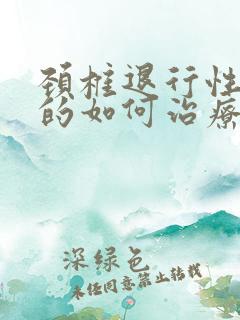 颈椎退行性
的如何治疗
深绿色
未经同意禁止转载